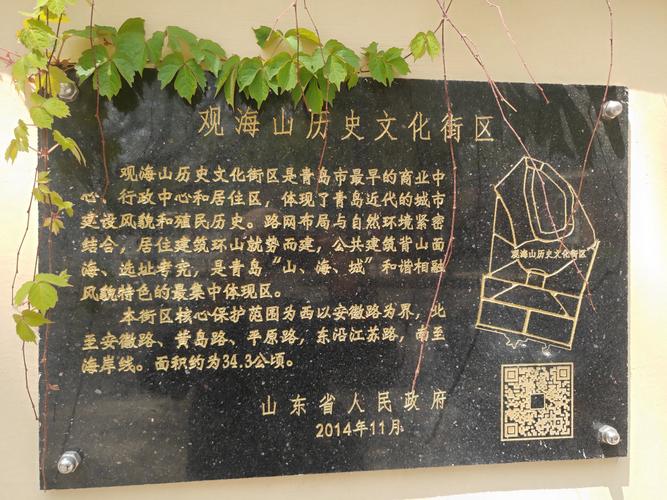 观海山历史文化街区
观海山历史文化街区是青岛市最早的商业中
心、行政中心和居住区，体现了青岛近代的城市
建设风貌和殖民历史。路网布局与自然环境紧密
结合，居住建筑环山就势而建，公共建筑背山面
海、选址考究，是青岛“山、海、城”和谐相融
风貌特色的最集中体现区。
本街区核心保护范围为西以安徽路为界，北
至安徽路、黄岛路、平原路，东沿江苏路，南至
海岸线。面积约为34.3公顷。
观海山历史文化街区
山东省人民政府
2014年11月